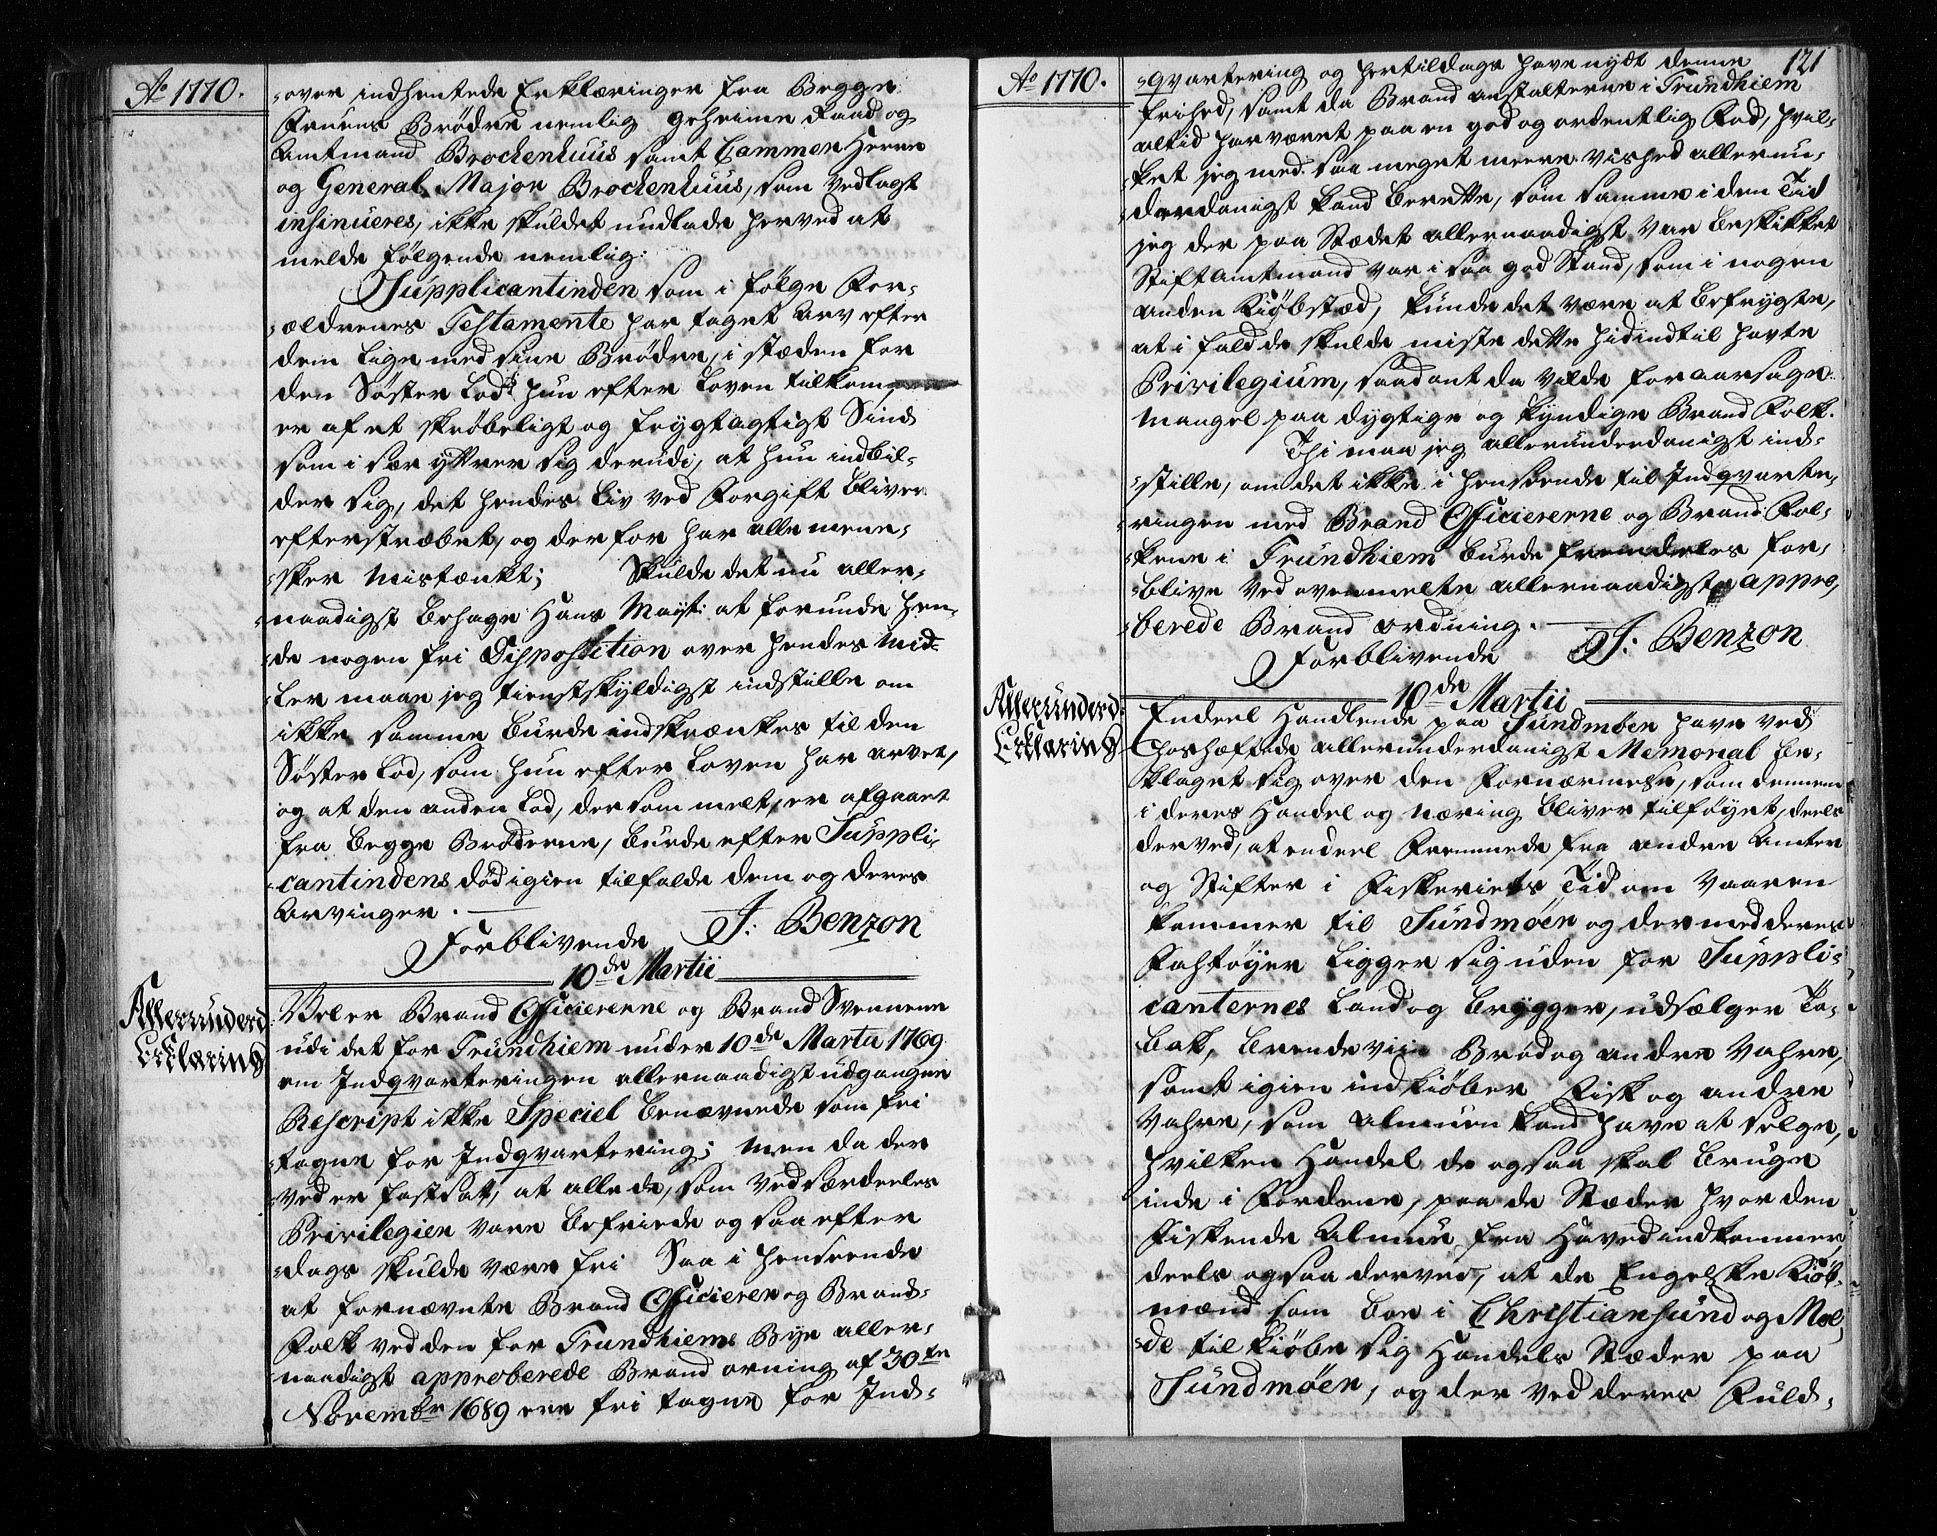 Ao 1770.
-over indhentede Erklæringer fra Begge
Fruens Brødre nemlig geheime Raad og
Amtmand Brockenhuus samt Cammer Herre
og General Major Brockenhuus, som vedlagt
insinueres, ikke skuldet undlade herved at
melde følgende nemlig:
Supplicantinden som i følge For-
-ældrenes Testamente har taget Arv efter
dem lige med sine Brødre, i stæden for
den Søster Lod hun efter Loven tilkom,
er af et skrøbeligt og frygtagtigt Sind
som i sær yttrer sig derudi, at hun indbil-
der sig, det hendes Liv ved Forgift bliver
efterstræbet, og derfor har alle menne-
-sker mistænkt; Skulde det nu aller-
-naadigst behage Hans Mayst: at forunde hen-
-de nogen fri Disposition over hendes mid-
-ler maae jeg tienstskyldigst indstille om
ikke samme burde indskrænkes til den
Søster Lod, som hun efter Loven har arvet,
og at den anden Lod, der som melt, er afgaaet
fra begge Brødrene, burde efter Suppli-
-cantindens død igien tilfalde dem og deres
Arvinger.
Forblivende J: Benzon
10de Martii
Allerunderd:
Erklæring
Vel er Brand Officiererne og Brand Svennene
udi det for Trundhiem under 10de Martii 1769
om Indqvarteringen allernaadigst udgangne
Rescript ikke Speciel benævnede som fri
-tagne for Indqvartering; men da der
ved er fastsat, at alle de, som ved særdeeles
Privilegier vare befriede og saa efter
-dags skulde være fri Saa i henseende
at fornævnte Brand Officierer og Brand-
Folk ved den for Trundhiems Bye aller-
naadigst approberede Brand orning af 30te
Novembr 1689 ere fri tagne for Ind-
Ao 1770.
121
-qvartering og hertildags have nydt denne
frihed, samt da Brand anstalterne i Trundhiem
altid har været paa en god og ordentlig Fod, hvil-
-ket jeg med saa meget meere vished allerun-
-derdanigst kand berette, som samme i den Tiid
jeg der paa Stædet allernaadigst var beskikket
Stiftamtmand var i saa god Stand, som i nogen
anden Kiøbstæd, kunde det være at befrygte,
at i fald de skulde miste dette hidindtil havte
Privilegium, saadant da vilde foraarsage
mangel paa dygtige og kyndige Brand Folk.
Thi maa jeg allerunderdanigst ind-
-stille, om det ikke i henseende til Indqvarte-
-ringen med Brand Officiererne og Brand Fol-
-kene i Trundhiem burde fremdeeles for-
-blive ved ovenmelte allernaadigst appro-
-berede Brand ordning.
Forblivende J: Benzon
10de Martii
Allerunderd:
Erklæring
Endeel Handlende paa Sundmøer have ved
hoshæftede allerunderdanigst Memorial be-
klaget sig over den Fornærmelse, som dennem
i deres Handel og Næring bliver tilføyet, deels
derved, at endeel Fremmede fra andre Amter
og Stifter i Fiskeriets Tid om Vaaren
kommer til Sundmøer og der med deres
Fahrtøyer ligger sig uden for Suppli-
canternes Land og brygger, udsælger To-
bak, brendeviin Brød og andre Vahre,
samt igien indkiøber Fisk og andre
Vahre, som Almuen kand have at selge,
hvilken Handel de ogsaa skal bruge
inde i Fiordene, paa de Stæder hvor den
Fiskende Almue fra Havet indkommer,
deels ogsaa derved, at de Engelske Kiøb-
mænd som boe i Christiansund og Mol-
-de til kiøbe sig Handels Stæder paa
Sundmøer, og der ved deres Fuld-